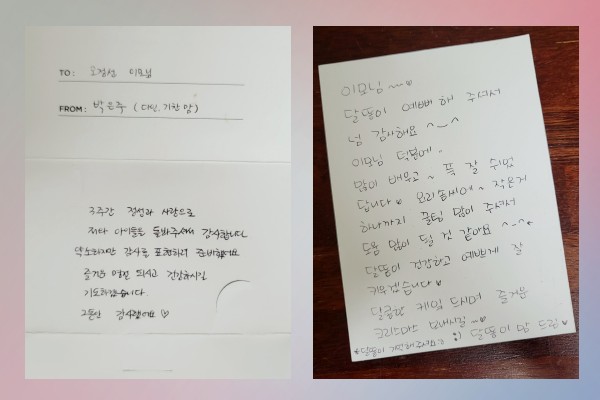 TO: 오점선 이모님
FROM: 박은주 (다인, 기찬 맘)
3주간 정성과 사랑으로
저와 아이들을 돌봐주셔서 감사합니다.
약소하지만 감사를 표현하려 준비했어요.
즐거운 연말 되시고 건강하시길
기도하겠습니다.
그동안 감사했어요 ♡
이모님 ~~♡
달똥이 예뻐해 주셔서
넘 감사해요 ^‿^
이모님 덕분에~
많이 배우고~ 푹 잘 쉬었
답니다♥ 요리솜씨에~ 작은거
하나까지 꿀팁 많이 주셔서
도움 많이 될 것 같아요 ^-^*
달똥이 건강하고 예쁘게 잘
키우겠습니다♥
달콤한 케잌 드시며 즐거운
크리스마스 보내시길~♡
*달똥이 기억해주세요 :) 달똥이 맘 드림♥